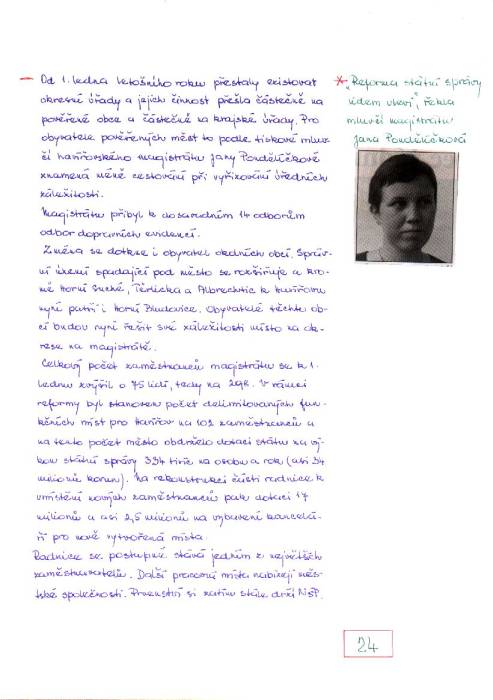 Od 1. ledna letošního roku přestaly existovat
okresní úřady a jejich činnost přešla částečně na
pověřené obce a částečně na krajské úřady. Pro
obyvatele pověřených měst to podle tiskové mluv-
čí havířovského magistrátu Jany Pondělíčkové
znamená méně cestování při vyřizování úředních
záležitostí.
Magistrátu přibyl k dosavadním 14 odborům
odbor dopravních evidencí.
Změna se dotkne i obyvatel okolních obcí. Správ-
ní území spadající pod město se rozšiřuje a kro-
mě Horní Suché, Těrlicka a Albrechtic k Havířovu
nyní patří i Horní Bludovice. Obyvatelé těchto ob-
cí budou nyní řešit své záležitosti místo na ok-
rese na magistrátě.
Celkový počet zaměstnanců magistrátu se k 1.
lednu zvýšil o 75 lidí, tedy na 298. V rámci
reformy byl stanoven počet delimitovaných fun-
kčních míst pro Havířov na 102 zaměstnanců a
na tento počet město obdrželo dotaci státu na vý-
kon státní správy 334 tisíc na osobu a rok (asi 34
milionů korun). Na rekonstrukci části radnice k
umístění nových zaměstnanců pak dotaci 17
milionů a asi 2,5 milionů na vybavení kancelá-
ří pro nově vytvořená místa.
Radnice se postupně stává jedním z největších
zaměstnavatelů. Další pracovní místa nabízejí měs-
tské společnosti. Prvenství si zatím stále drží NsP.
* „Reforma státní správy
lidem uleví", řekla
mluvčí magistrátu
Jana Pondělíčková
24